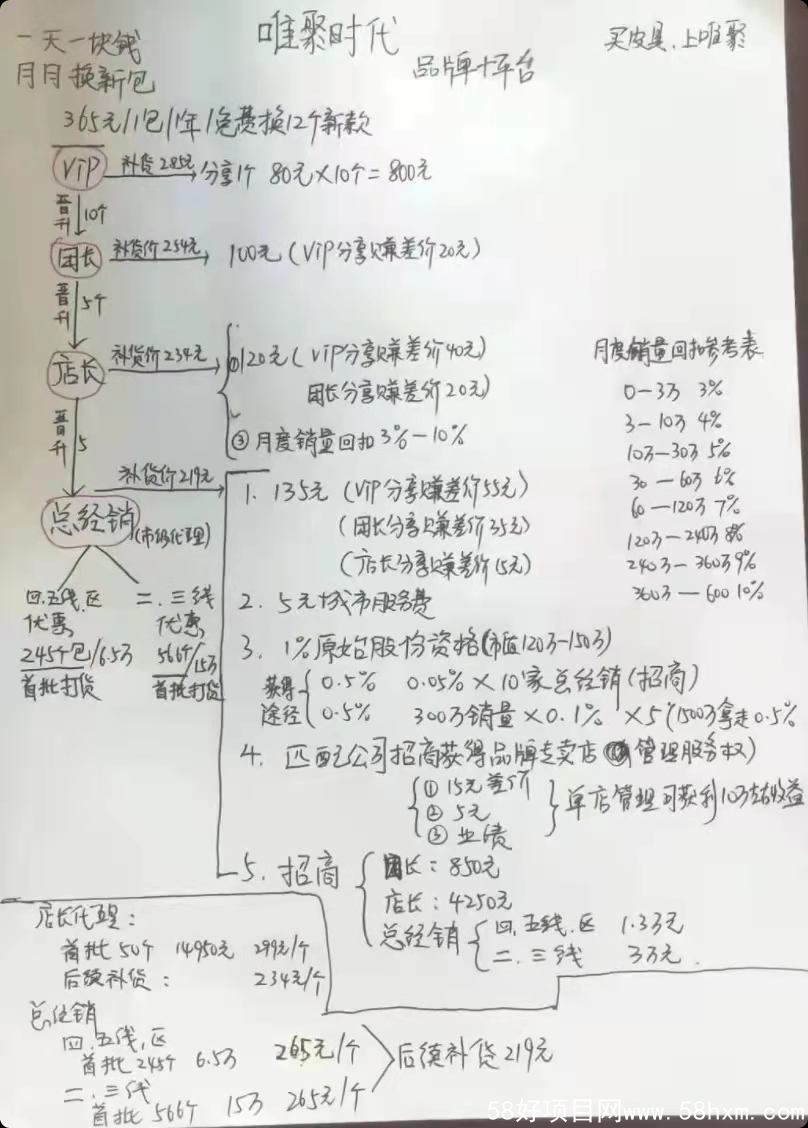 一天一块钱
月月换新包
唯聚时代
品牌+平台
买皮具.上唯聚
365元/1包/1年/免费换12个新款
VIP 补货285元 分享1个 80元×10个=800元
晋升 10个
团长 补货价254元 100元(VIP分享赚差价20元)
晋升 5个
店长 补货价234元 ①120元(VIP分享赚差价40元)
团长分享赚差价20元)
③月度销量回扣3%-10%
月度销量回扣参考表
0-3万 3%
3-10万 4%
10万-30万 5%
30-60万 6%
60-120万 7%
120万-240万 8%
240万-360万 9%
360万-600 10%
晋升 5
总经销(市级代理) 补货价219元
四.五线.区
优惠
245个包/6.5万
首批打货
二.三线
优惠
566个/15万
首批打货
1. 135元(VIP分享赚差价55元)
(团长分享赚差价35元)
(店长分享赚差价15元)
2. 5元城市服务费
3. 1%原始股份资格(市值120万-150万)
获得途径
0.5% 0.05%×10家总经销(招商)
0.5% 300万销量×0.1% ×5(1500万拿走0.5%
4. 匹配公司招商获得品牌专卖店管理服务权)
①15元差价
②5元
③业绩
单店管理可获利10万左右收益
5. 招商
团长:850元
店长:4250元
总经销
四.五线.区 1.3万元
二.三线 3万元.
店长代理:
首批50个 14950元 299元/个
后续补货: 234元/个
总经销
四.五线.区
首批245个 6.5万 265元/个
二.三线
首批566个 15万 265元/个
后续补货219元
58好项目网www.58hxm.com